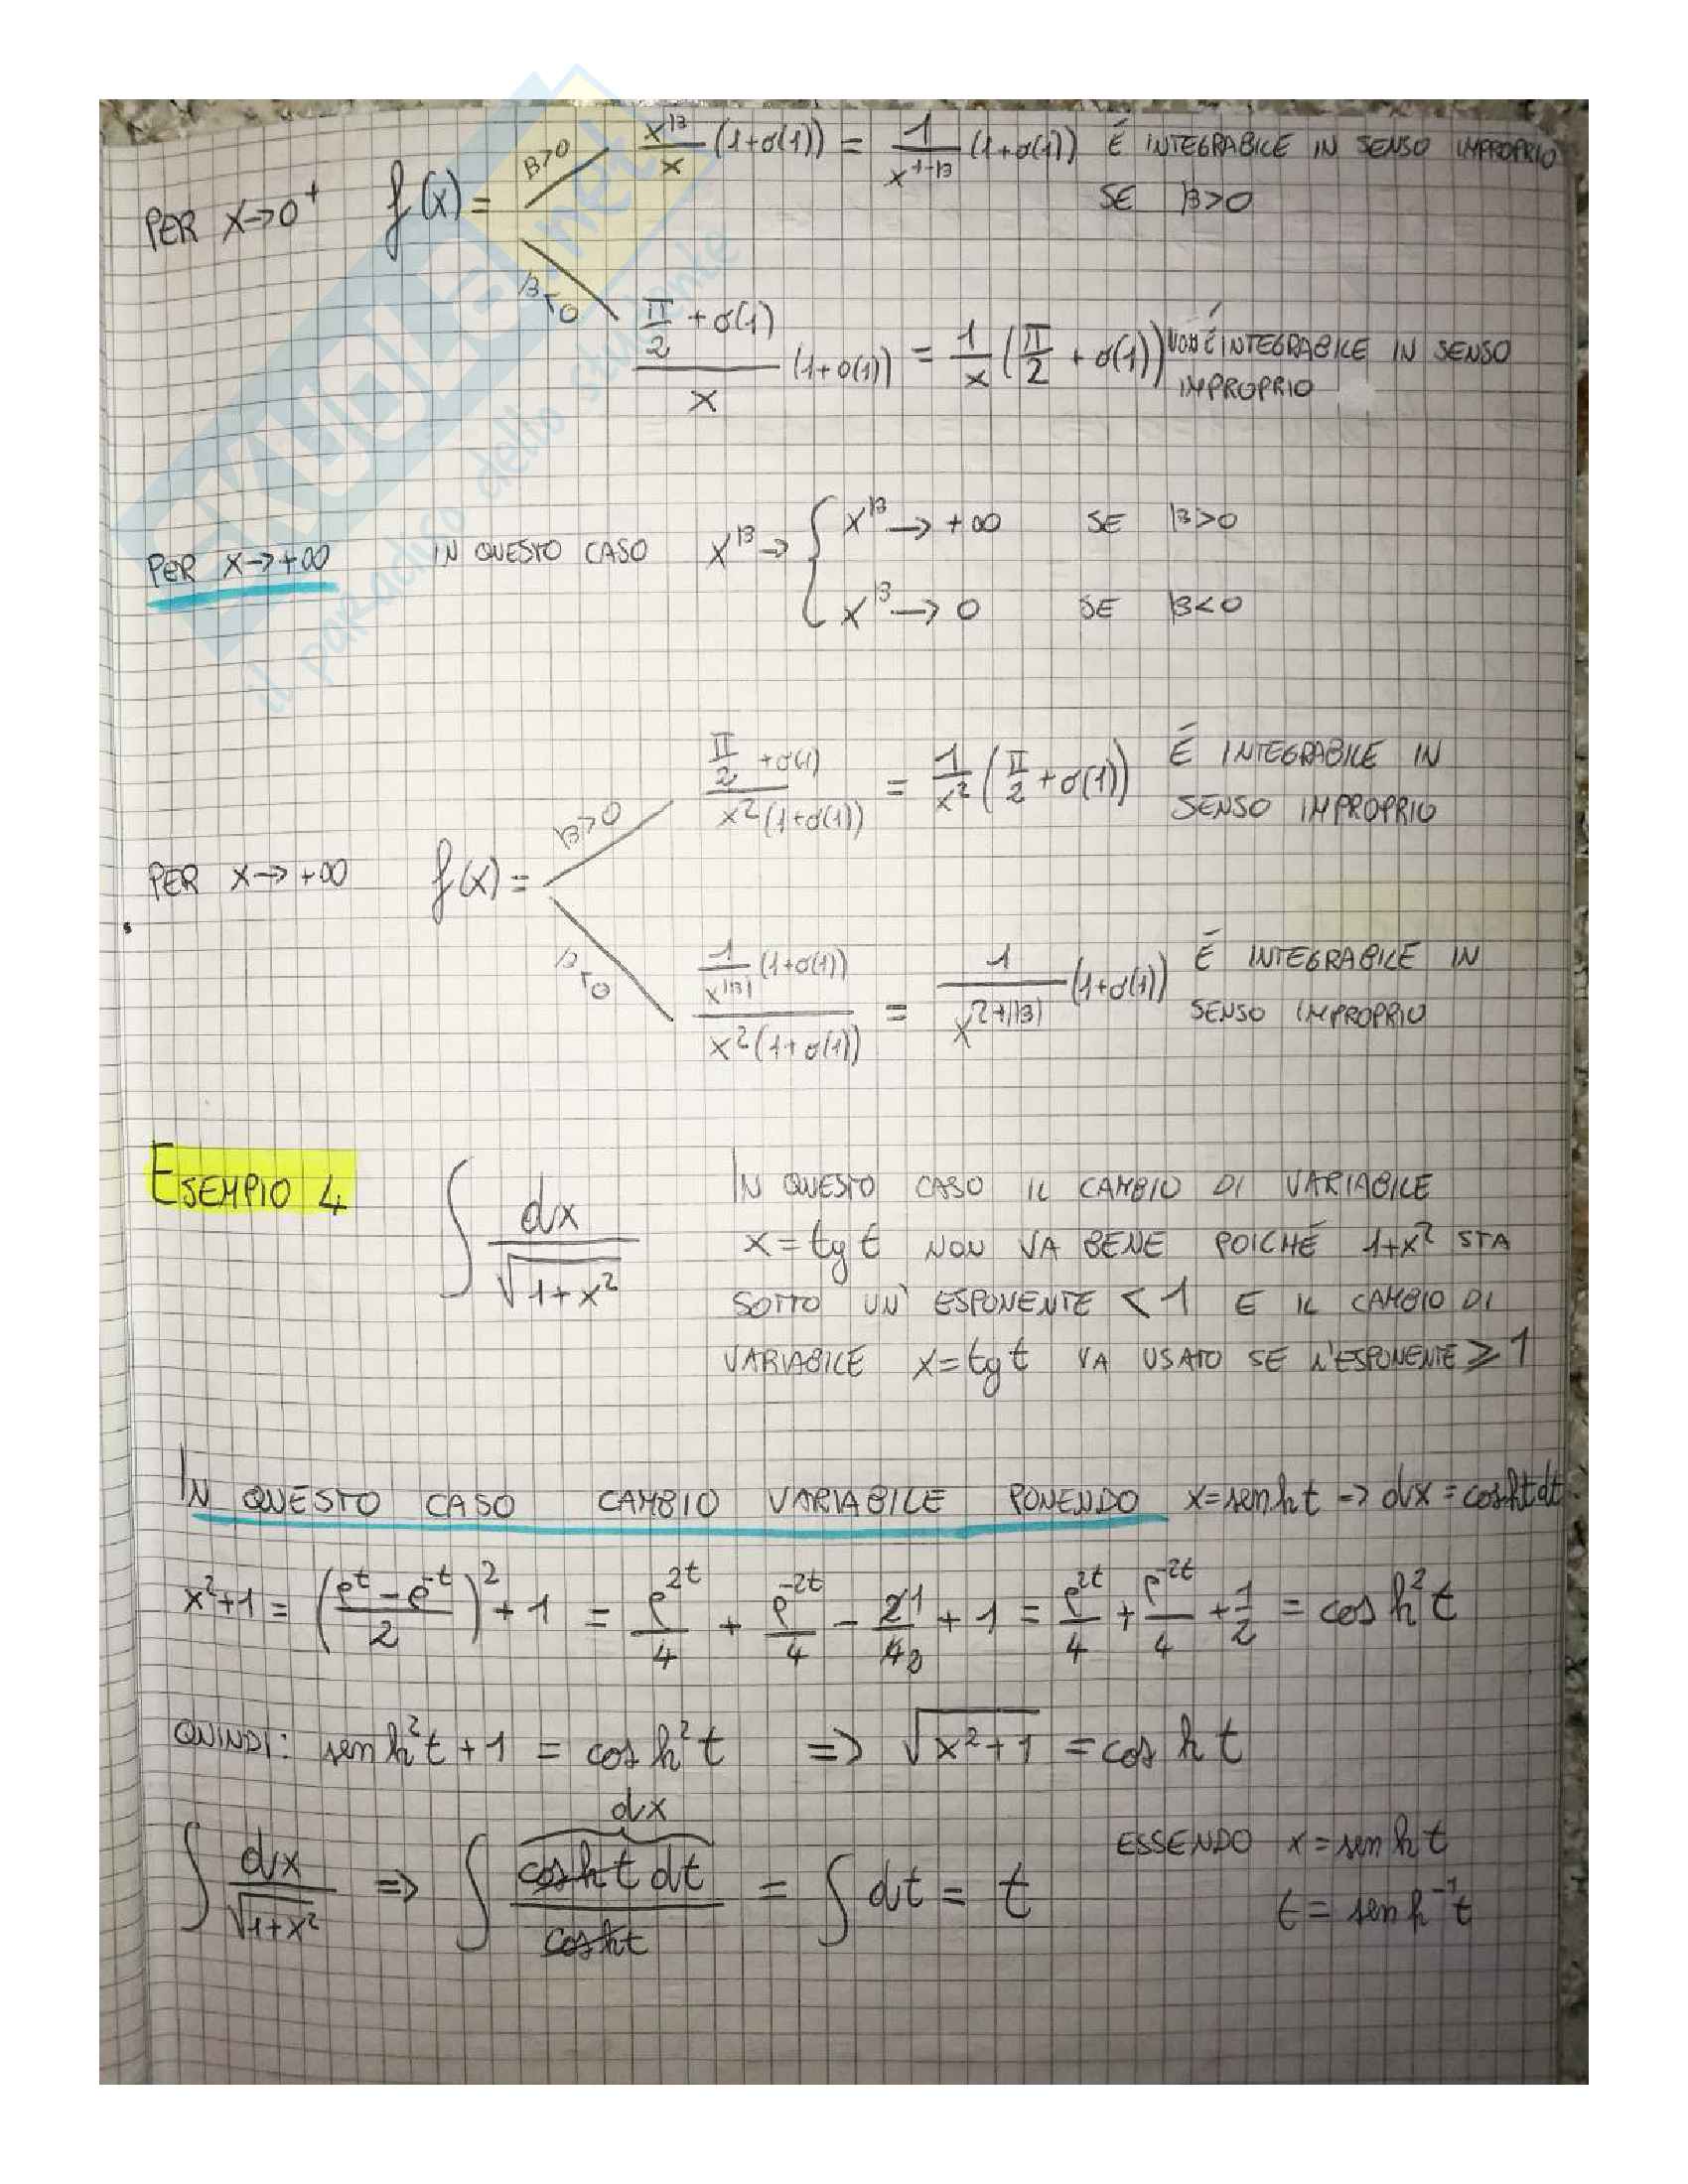 PER x→0⁺ f(x) = β>0 x^β/x (1+σ(1)) = 1/x^(1-β) (1+σ(1)) É INTEGRABILE IN SENSO IMPROPRIO
SE β>0
β<0 (π/2 + σ(1))/x (1+σ(1)) = 1/x (π/2 + σ(1)) NON É INTEGRABILE IN SENSO
IMPROPRIO
PER x→+∞ IN QUESTO CASO x^β → { x^β → +∞ SE β>0
x^β → 0 SE β<0
PER x→+∞ f(x) = β>0 (π/2 + σ(1))/(x²(1+σ(1))) = 1/x² (π/2 + σ(1)) É INTEGRABILE IN
SENSO IMPROPRIO
β<0 (1/x^|β| (1+σ(1)))/(x²(1+σ(1))) = 1/x^(2+|β|) (1+σ(1)) É INTEGRABILE IN
SENSO IMPROPRIO
ESEMPIO 4 ∫ dx/√(1+x²) IN QUESTO CASO IL CAMBIO DI VARIABILE
x = tg t NON VA BENE POICHÉ 1+x² STA
SOTTO UN' ESPONENTE < 1 E IL CAMBIO DI
VARIABILE x = tg t VA USATO SE L'ESPONENTE ⩾ 1
IN QUESTO CASO CAMBIO VARIABILE PONENDO x = senh t → dx = cosh t dt
x²+1 = ((e^t − e^-t)/2)² + 1 = e^2t/4 + e^-2t/4 − 2 1/4 2 + 1 = e^2t/4 + e^-2t/4 + 1/2 = cosh² t
QUINDI: senh² t + 1 = cosh² t ⇒ √(x²+1) = cosh t
dx
∫ dx/√(1+x²) ⇒ ∫ cosh t dt/cosh t = ∫ dt = t ESSENDO x = senh t
t = senh⁻¹ t
SKUOLA.net
il paradiso dello studente